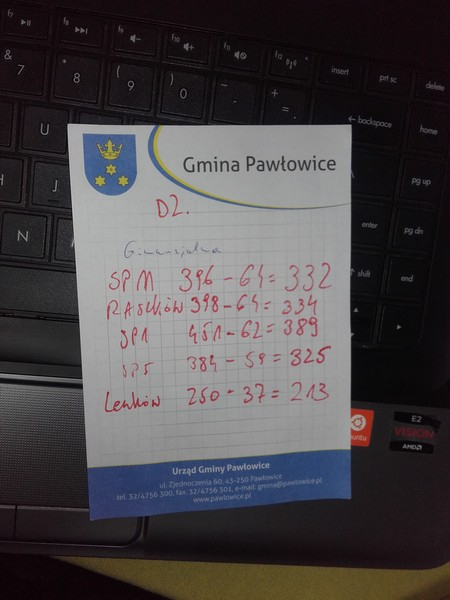 f7
f8
f9
f10
f11
f12
insert
prt sc
delete
&
7
*
8
(
9
)
0
_
-
+
=
← backspace
home
U
pg up
H
J
enter
pg dn
N
⇧ shift
end
Gmina Pawłowice
D2.
SPM 396 - 64 = 332
RASZKÓW 398 - 64 = 334
SP1 451 - 62 = 389
SP5 384 - 59 = 325
250 - 37 = 213
Urząd Gminy Pawłowice
ul. Zjednoczenia 60, 43-250 Pawłowice
tel. 32/4756 300, fax. 32/4756 301, e-mail: gmina@pawlowice.pl
www.pawlowice.pl
E2
VISION
AMD